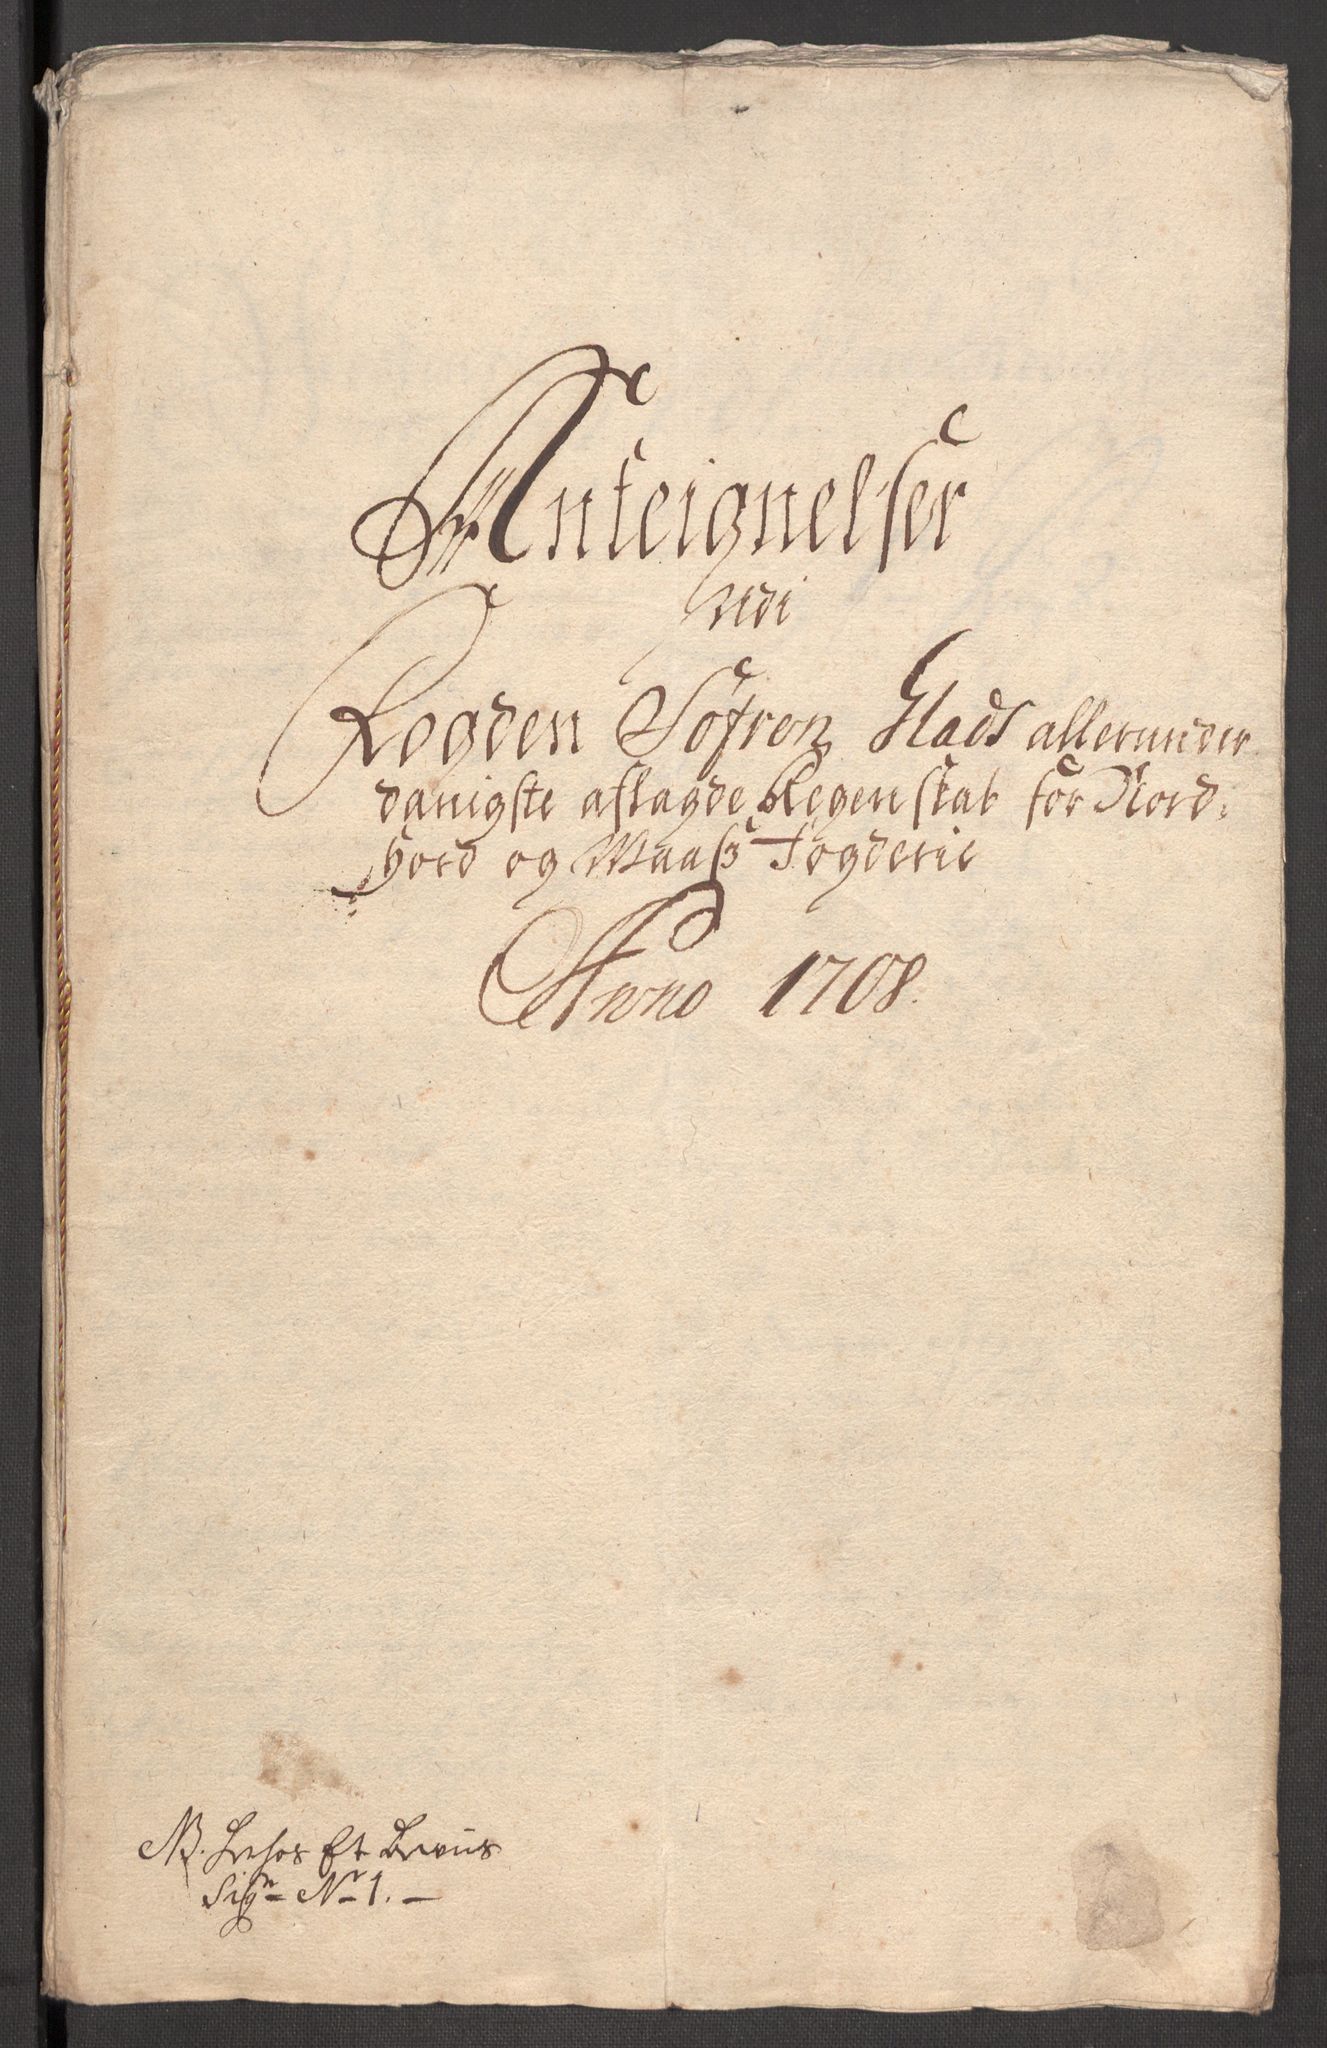 Anteignelser
udi
Fogden Søfren Glads allerunder
danigste aflagde Regenskab for Nord-
hord og Waaß Fogderie
Anno 1708.
NB. Et
Sign No 1.